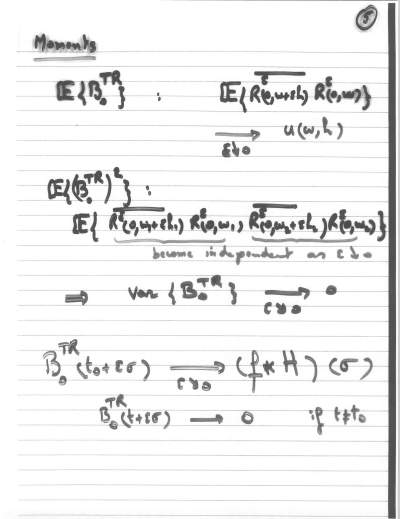 5
Moments
𝔼{B₀ᵀᴿ} : 𝔼{\overline{R^ε(0,ω+εh)} R^ε(0,ω)}
⟶_{ε↓0} u(ω,h)
𝔼{(B₀ᵀᴿ)²} :
𝔼{\overline{R^ε(0,ω₁+εh₁)} R^ε(0,ω₁) \overline{R^ε(0,ω₂+εh₂)} R^ε(0,ω₂)}
become independent as ε↓0
⇒ Var {B₀ᵀᴿ} ⟶_{ε↓0} 0
B₀ᵀᴿ(t₀+εσ) ⟶_{ε↓0} (f*H)(σ)
B₀ᵀᴿ(t+εσ) ⟶ 0 if t≠t₀